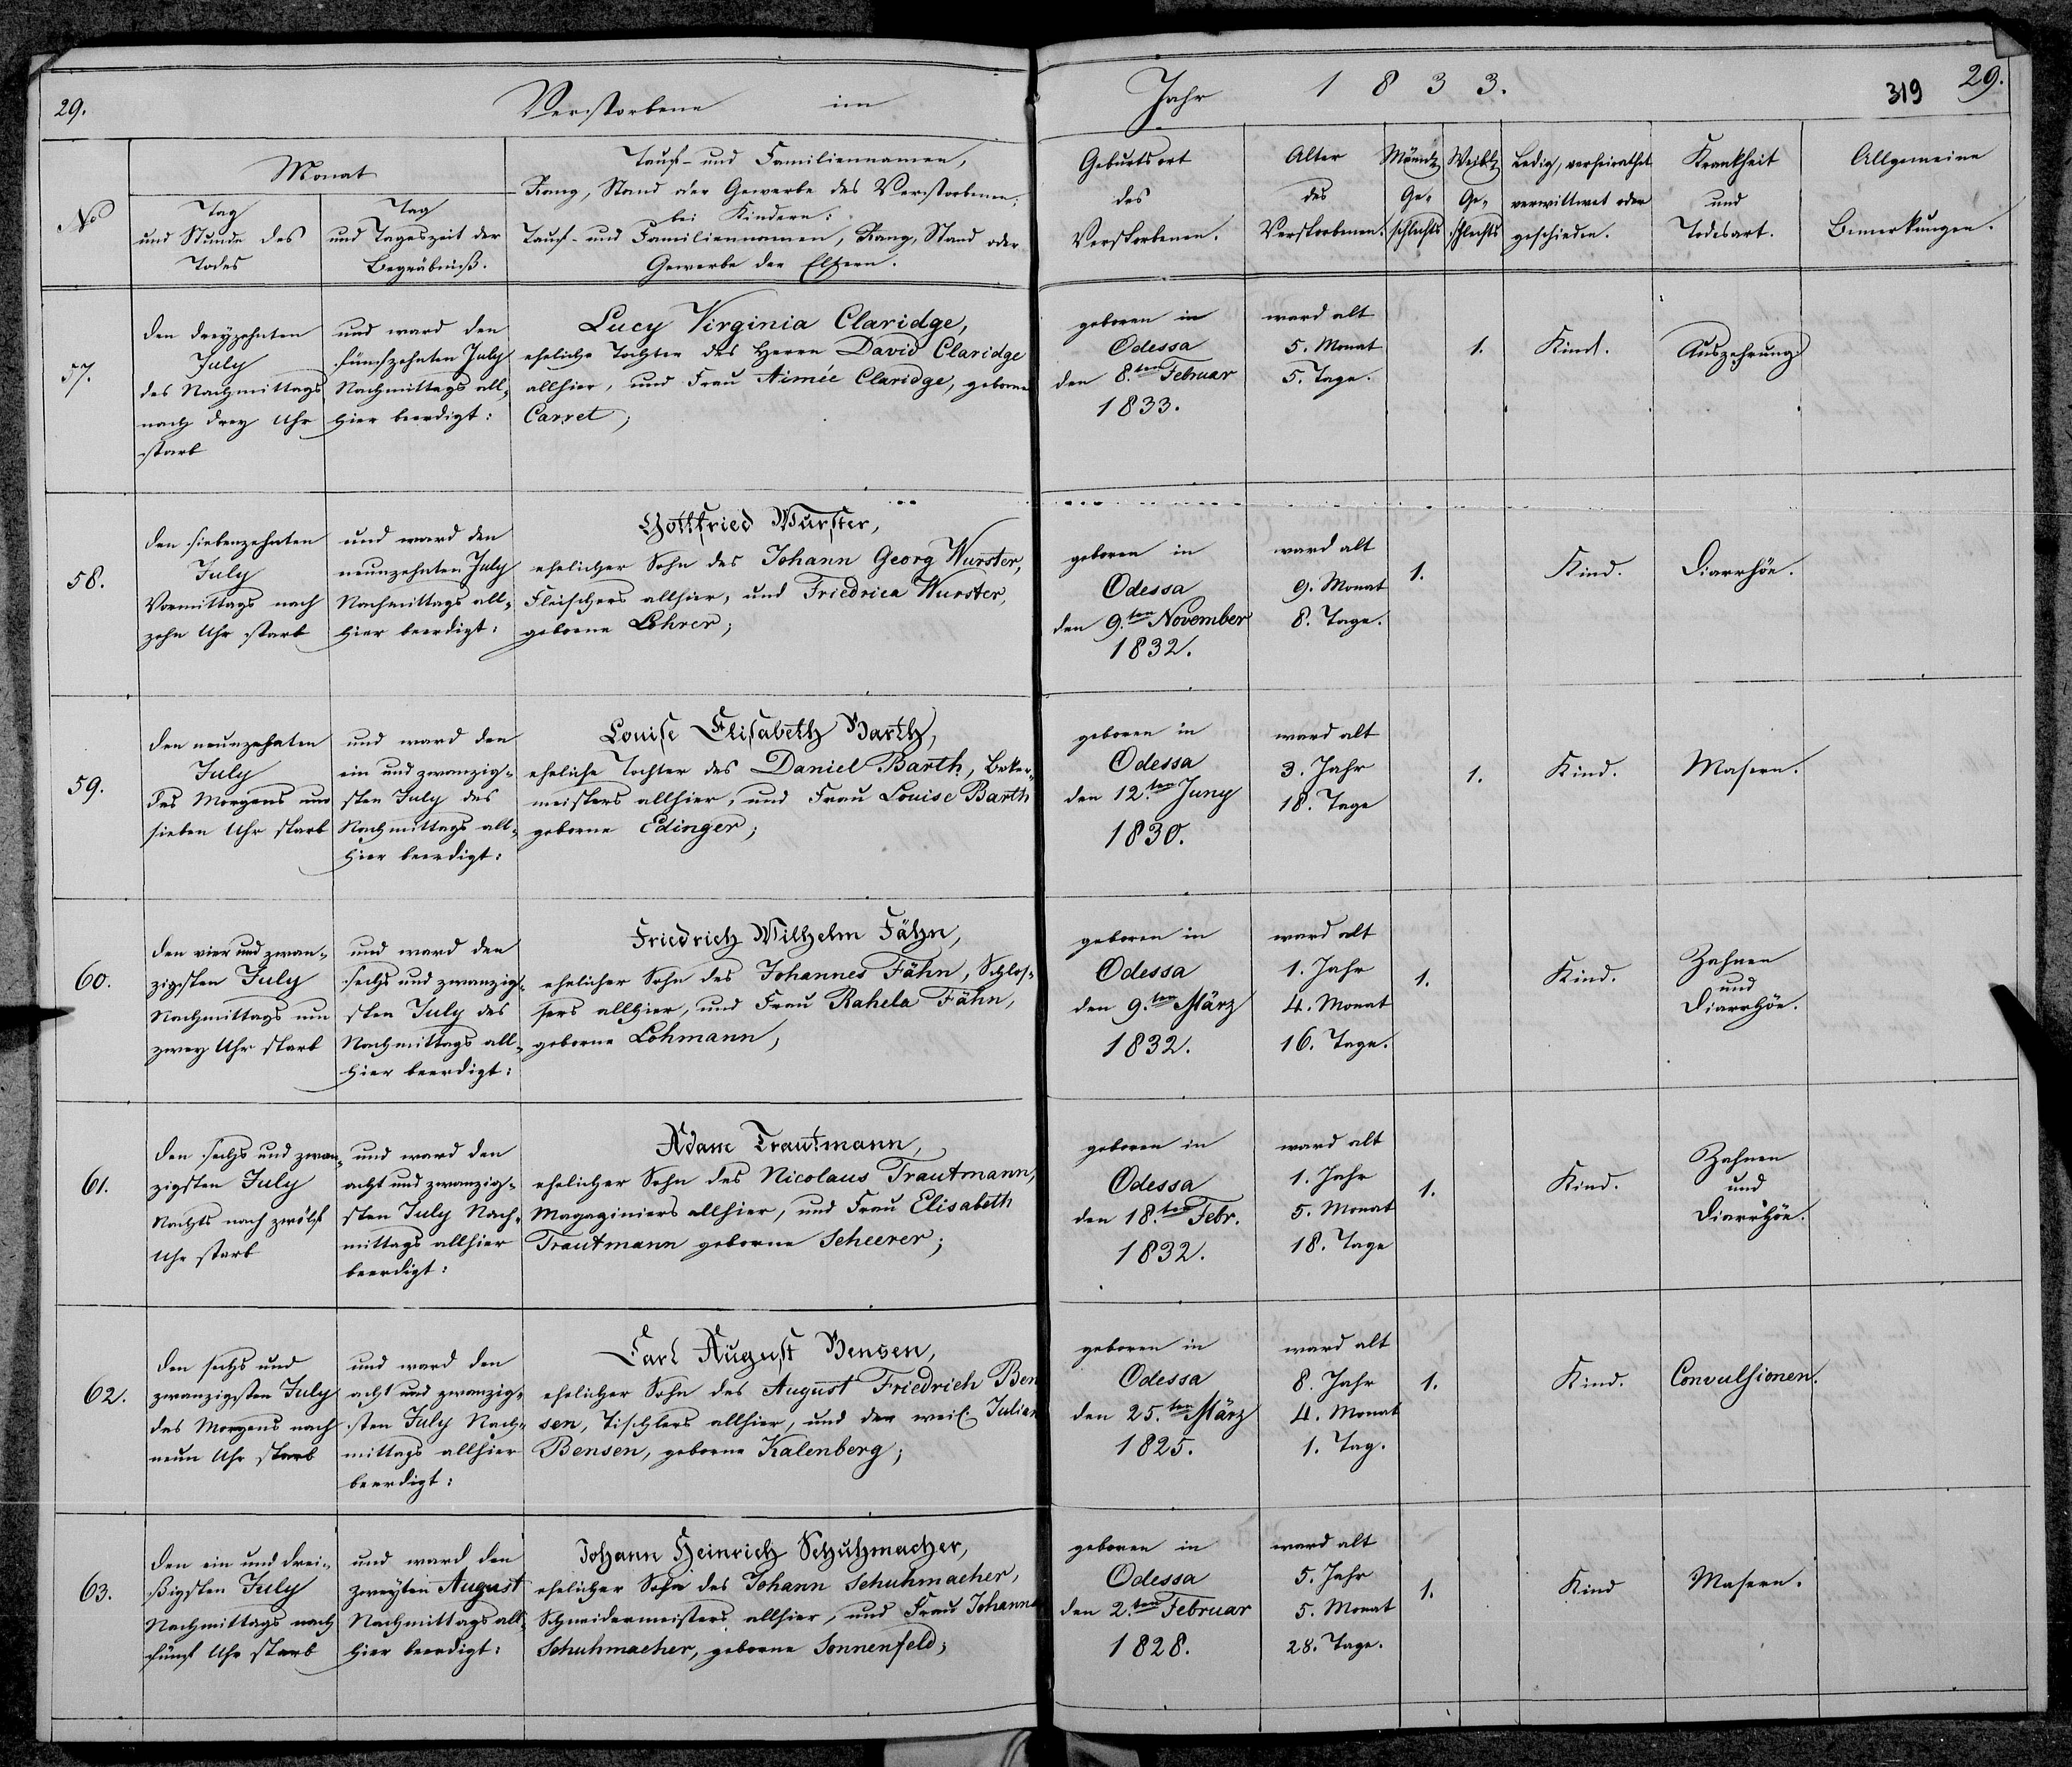 29.
Verstorbene im
Jahr 1833.
319
29.
No
Monat
Tag
und Stunde des
Todes
Tag
und Tageszeit der
Begräbniß.
Tauf- und Familiennamen,
Rang, Stand oder Gewerbe des Verstorbenen.
bei Kindern:
Tauf- und Familiennamen, Rang, Stand oder
Gewerbe der Eltern.
Geburtsort
des
Verstorbenen.
Alter
des
Verstorbenen.
Männl.
Ge-
schlechts
Weibl.
Ge-
schlechts
Ledig, verheirathet
verwittwet oder
geschieden.
Krankheit
und
Todesart.
Allgemeine
Bemerkungen.
57.
den dreyzehnten
July
des Nachmittags
nach drey Uhr
starb
und ward den
fünfzehnten July
Nachmittags all-
hier beerdigt:
Lucy Virginia Claridge,
eheliche Tochter des Herrn David Claridge
allhier, und Frau Aimée Claridge, geborne
Carret;
geboren in
Odessa
den 8.ten Februar
1833.
ward alt
5. Monat
5. Tage.
1.
Kind.
Auszehrung
58.
den siebenzehnten
July
Vormittags nach
zehn Uhr starb
und ward den
neunzehnten July
Nachmittags all-
hier beerdigt:
Gottfried Wurster,
ehelicher Sohn des Johann Georg Wurster,
Fleischers allhier, und Friedrica Wurster,
geborne Lohrer;
geboren in
Odessa
den 9.ten November
1832.
ward alt
9. Monat
8. Tage.
1.
Kind.
Diarrhöe.
59.
den neunzehnten
July
des Morgens um
sieben Uhr starb
und ward den
ein und zwanzig-
sten July des
Nachmittags all-
hier beerdigt:
Louise Elisabeth Barth,
eheliche Tochter des Daniel Barth, Beker-
meisters allhier, und Frau Louise Barth
geborne Edinger;
geboren in
Odessa
den 12.ten Juny
1830.
ward alt
3. Jahr
18. Tage
1.
Kind.
Masern.
60.
den vier und zwan-
zigsten July
Nachmittags um
zwey Uhr starb
und ward den
sechs und zwanzig-
sten July des
Nachmittags all-
hier beerdigt:
Friedrich Wilhelm Fähn,
ehelicher Sohn des Johannes Fähn, Schlos-
sers allhier, und Frau Rahela Fähn,
geborne Lohmann,
geboren in
Odessa
den 9.ten März
1832.
ward alt
1. Jahr
4. Monat
16. Tage.
1.
Kind.
Zahnen
und
Diarrhöe.
61.
den sechs und zwan-
zigsten July
Nachts nach zwölf
Uhr starb
und ward den
acht und zwanzig-
sten July Nach-
mittags allhier
beerdigt:
Adam Trautmann,
ehelicher Sohn des Nicolaus Trautmann,
Magaziniers allhier, und Frau Elisabeth
Trautmann geborne Scheerer;
geboren in
Odessa
den 18.ten Febr.
1832.
ward alt
1. Jahr
5. Monat
18. Tage
1.
Kind.
Zahnen
und
Diarrhöe.
62.
den sechs und
zwanzigsten July
des Morgens nach
neun Uhr starb
und ward den
acht und zwanzig-
sten July Nach-
mittags allhier
beerdigt:
Carl August Bensen,
ehelicher Sohn des August Friedrich Ben
sen, Tischlers allhier, und der weil. Julian
Bensen, geborne Kalenberg;
geboren in
Odessa
den 25.ten März
1825.
ward alt
8. Jahr
4. Monat
1. Tag.
1.
Kind.
Convulsionen.
63.
den ein und drei-
ßigsten July
Nachmittags nach
fünf Uhr starb
und ward den
zweyten August
Nachmittags all-
hier beerdigt:
Johann Heinrich Schuhmacher,
ehelicher Sohn des Johann Schuhmacher,
Schneidermeisters allhier, und Frau Johanna
Schuhmacher, geborne Sonnenfeld;
geboren in
Odessa
den 2.ten Februar
1828.
ward alt
5. Jahr
5. Monat
28. Tage.
1.
Kind
Masern.